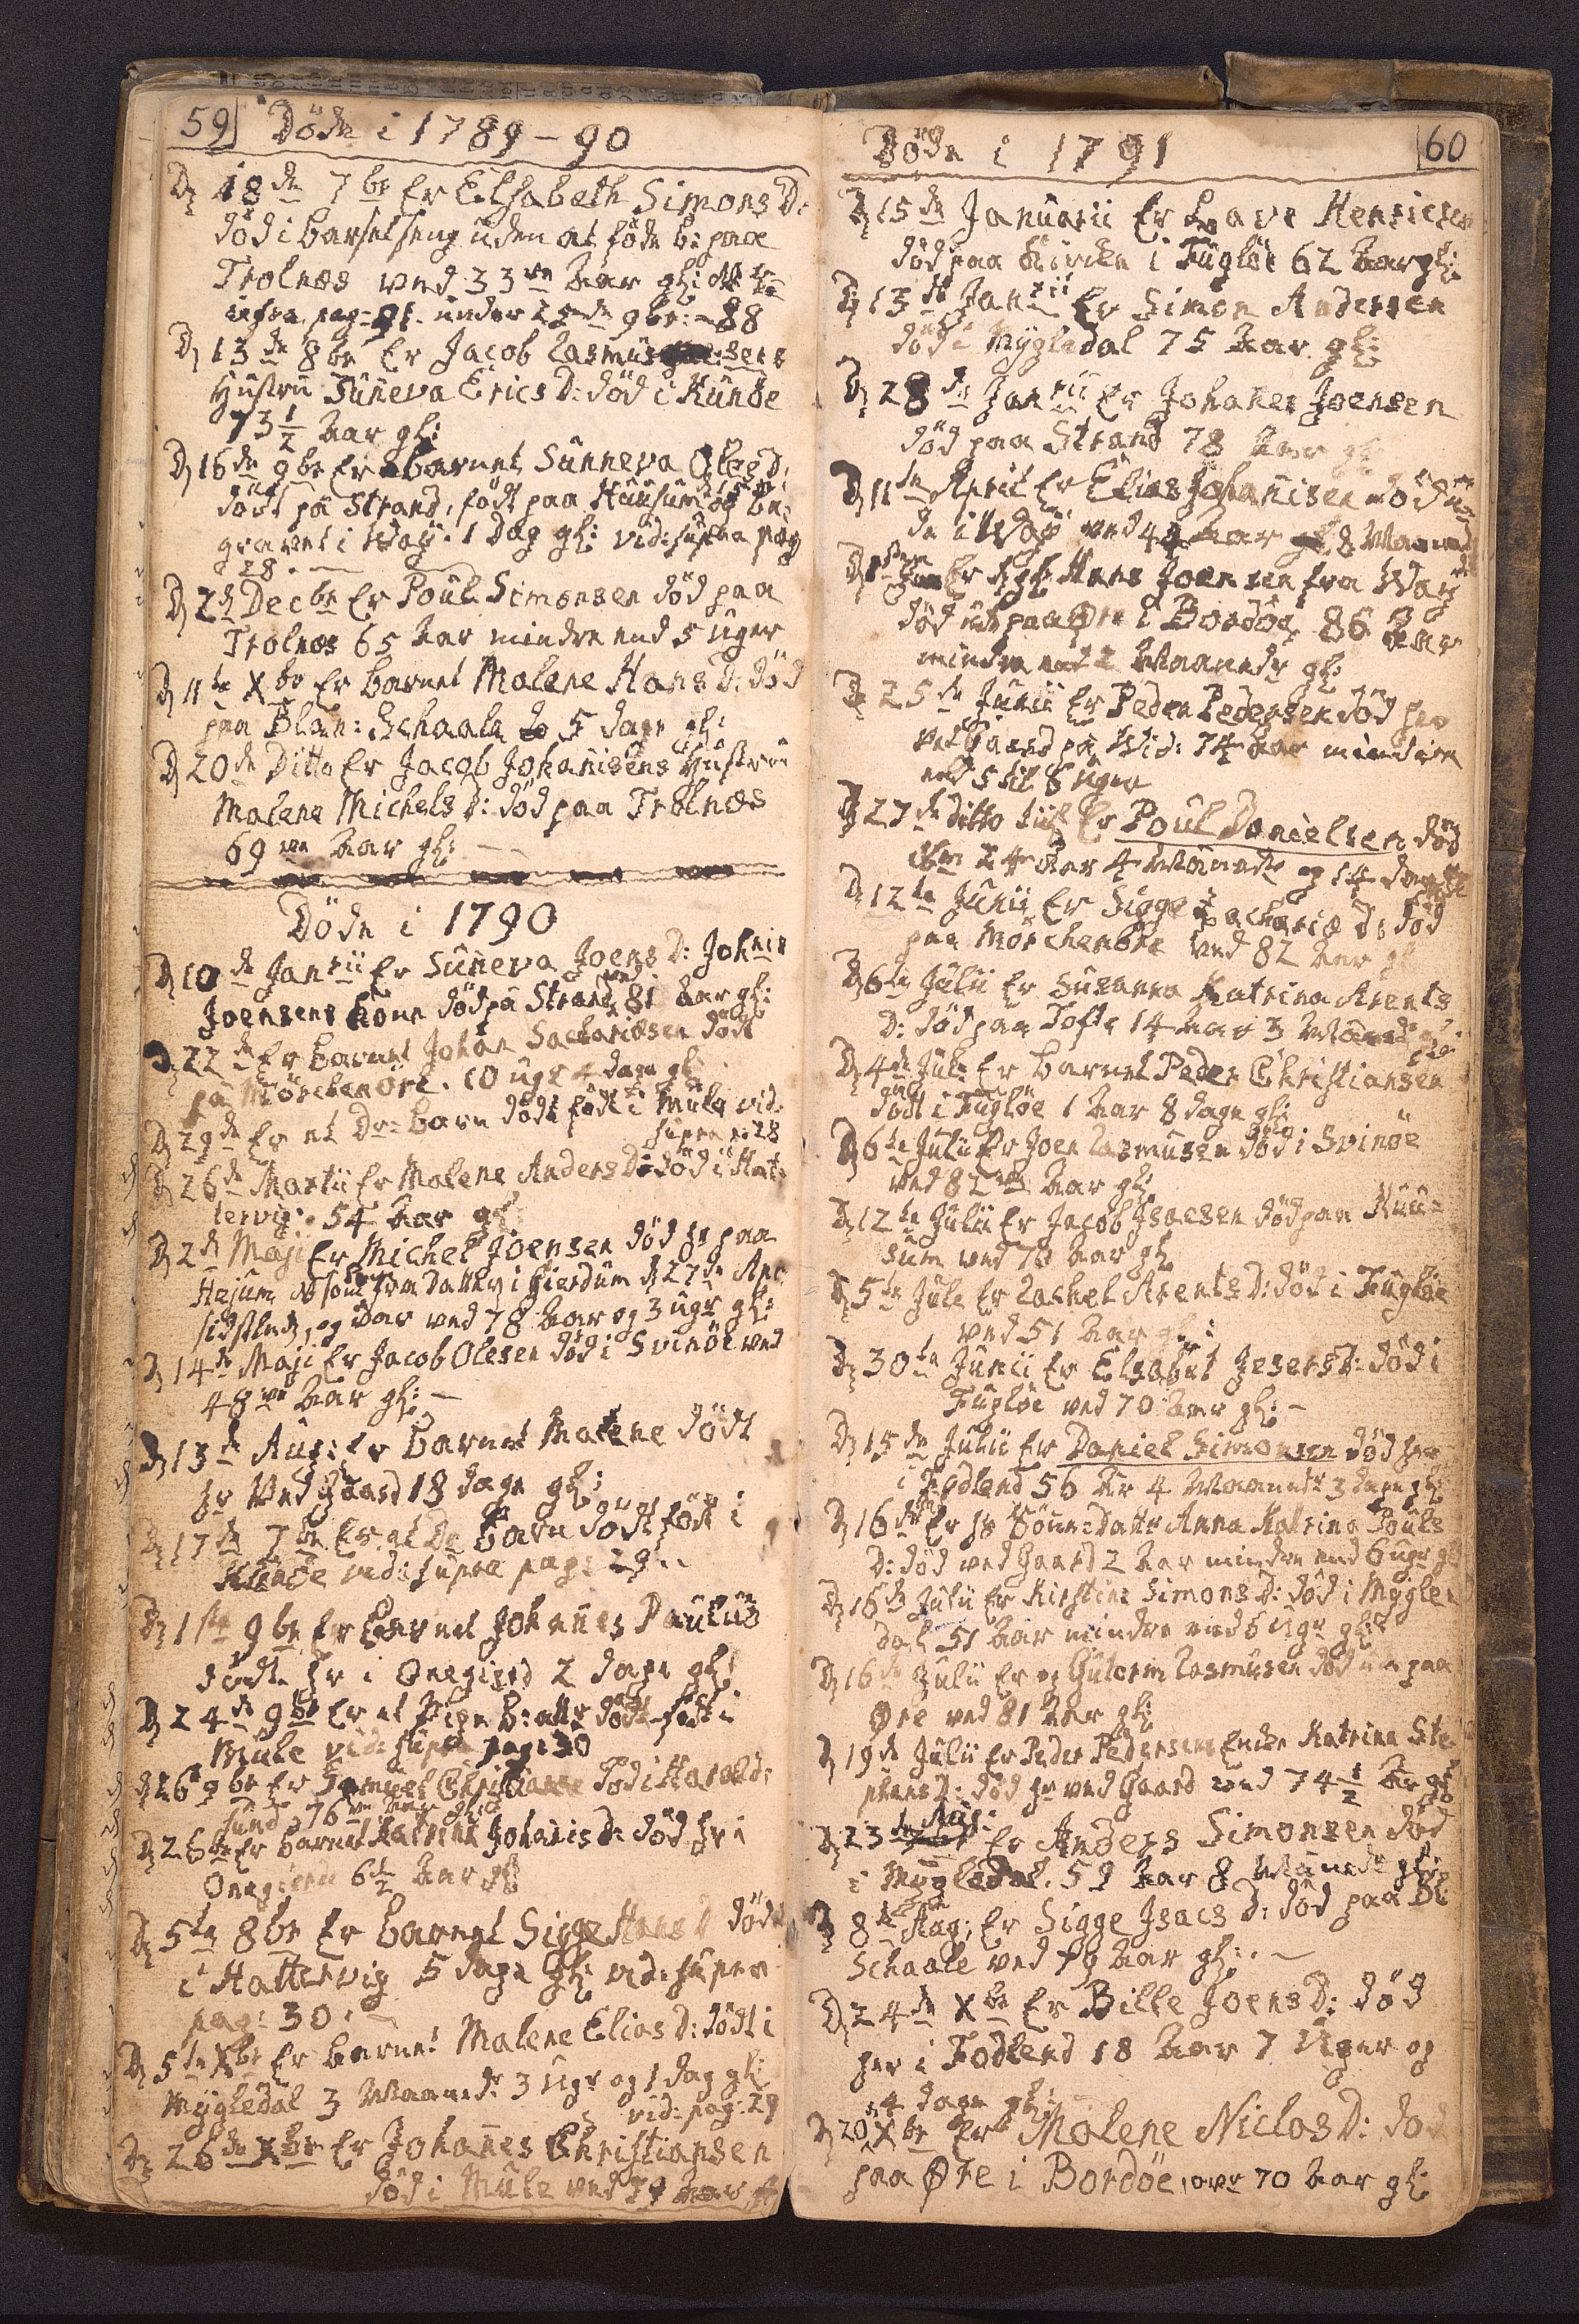 59 Döde i 1789-90
D 18de 7br Er Elsabeth Simons D:
död i barselseng uden at föde b: paa
Trolnæs ved 33ve Aar gl:
pag: under 25de 9br: 88
D 13de 8br Er Jacob Rasmus sens
Hustru Suneva Erics D: död i Kunöe
73 1/2 Aar gl:
D 16de 9br Er barnet Sunneva Oles D.
dödt på Strand, födt paa Huusum og be-
gravet i Waaj. 1 Dag gl: vid: supra pag
28.
D 2d Decbr Er Poul Simonsen död paa
Trolnæs 65 Aar mindre end 5 uger
D 11te Xbr Er barnet Malene Hans D: död
paa Blan: Schaale 5 dage gl:
D 20de Ditto Er Jacob Johanisens Hustru
Malene Michels D: död paa Trolnæs
69ve Aar gl:
Döde i 1790
D 10de Janrii Er Suneva Joens D: Johnis
Joensens Kone död på Strand ved 81 Aar gl:
D 22de Er barnet Johan Sachariæsen dödt
på Mörchenöre. 10 ugr 4 dage gl
D 29de Er et Dr: barn dödt födt i Mule vid.
supra p: 28
D 26de Martii Er Malene Anders D: död i Hat-
tervig. 54 Aar gl:
D 2d Maji Er Michel Joensen död hr paa
Hejum datter i D 27de Apr:
sidstleden, og var ved 78 Aar og 3 ugr gl:
D 14de Maji Er Jacob Olesen död i Svinöe ved
48ve Aar gl:
D 13de Aug: Er barnet Malene dödt
hr Ved Gaard 18 dage gl:
D 17de 7br Er et Dr barn dödt födt i
Kunöe vid: supra pag: 29
D 1ste 9br Er barnet Johanes Paulus
dödt hr i Onegierd 2 dage gl:
D 24de 9br Er et Pige B: dödt födt i
Mule vid: supra pag: 30
D 26 9br Er Samuel Christians död i Harald:
sund 76ve Aar gl:
D 26de Er barnet Katrina Johanis D: död hr i
Onegierd 6 1/2 Aar gl:
D 5te 8br Er barnet Sigge Hans D dödt
i Hattervig 5 dage gl: vid: supra
pag: 30.
D 5te Xbr Er barnet Malene Elias D: dödt i
Mygledal 3 Maander 3 ugr og 1 dag gl:
vid: pag: 29
D 26de Xbr Er Johanes Christiansen
död i Mule ved 79 Aar gl
Döde i 1791 60
D 15de Januarii Er Lave Henricsen
död paa Kircke i Fuglöe 62 Aar gl:
D 13de Janrii Er Simon Andersen
död i Mygledal 75 Aar gl:
D 28de Janrii Er Johanes Joensen
död paa Strand 78 Aar gl
D 11te April Er Elias Johanisen död
i Waaj ved 44 Aar 8 Maaned
D Er Hans Joensen fra Waaj
död ude paa Öre i Bordöe 86 Aar
mindre end 2 Maaneder gl:
D 25de Junii Er Peder Pedersen död her
ved Gaard på Wid: 74 Aar mindre
end 5 til 6 uger
D 27de ditto Er Poul Danielsen död
24 Aar 4 Maanedr og 14 dage
D 12te Junii Er Sigge Zachariæ D: död
paa Mörchenöre ved 82 Aar gl
D 6te Julii Er Susanna Katrina Arents
D: död paa Tofte 14 Aar 3 Maaned
D 4de Juli Er barnet Peder Christiansen
dödt i Fuglöe 1 Aar 8 dage gl:
D 6te Julii Er Joen Rasmusen död i Svinöe
ved 82ve Aar gl:
D 12te Julii Er Jacob Isacsen död paa Huu-
sum ved 70 Aar gl
D 5te Jule Er Rachel Arents D: död i Fuglöe
ved 51 Aar gl:
D 30te Junii Er Elsabet Jesers D: död i
Fuglöe ved 70 Aar gl:
D 15de Julii Er Daniel Simonsen död her
i Fodlend 56 Ar 4 Maanedr 3 dage gl:
D 16de Er hs Sönne Datter Anna Katrina Pouls
D: död ved Gaard 2 Aar mindre end 6 ugr gl
D 16de Julii Er Kirstina Simons D: död i Mygle-
dal 51 Aar mindre end 6 ugr gl:
D 16de Julii Er og Gutorm Rasmusen död ude paa
Öre ved 81 Aar gl:
D 19de Julii Er Peder Pedersens Enke Katrina Ste-
phens D: död hr ved Gaard ved 74 1/2 Aar gl
D 23de Aug: Er Anders Simonsen död
i Mygledal. 59 Aar 8 Maanedr gl:
D 8de Aug: Er Sigge Isacs D: död paa Bl:
Schaale ved 79 Aar gl:
D 24de Xbr Er Bille Joens D: död
her i Fodlend 18 Aar 7 Uger og
4 dage gl:
D 20de Xbr Er Malene Niclas D: död
paa Øre i Bordöe, over 70 Aar gl: